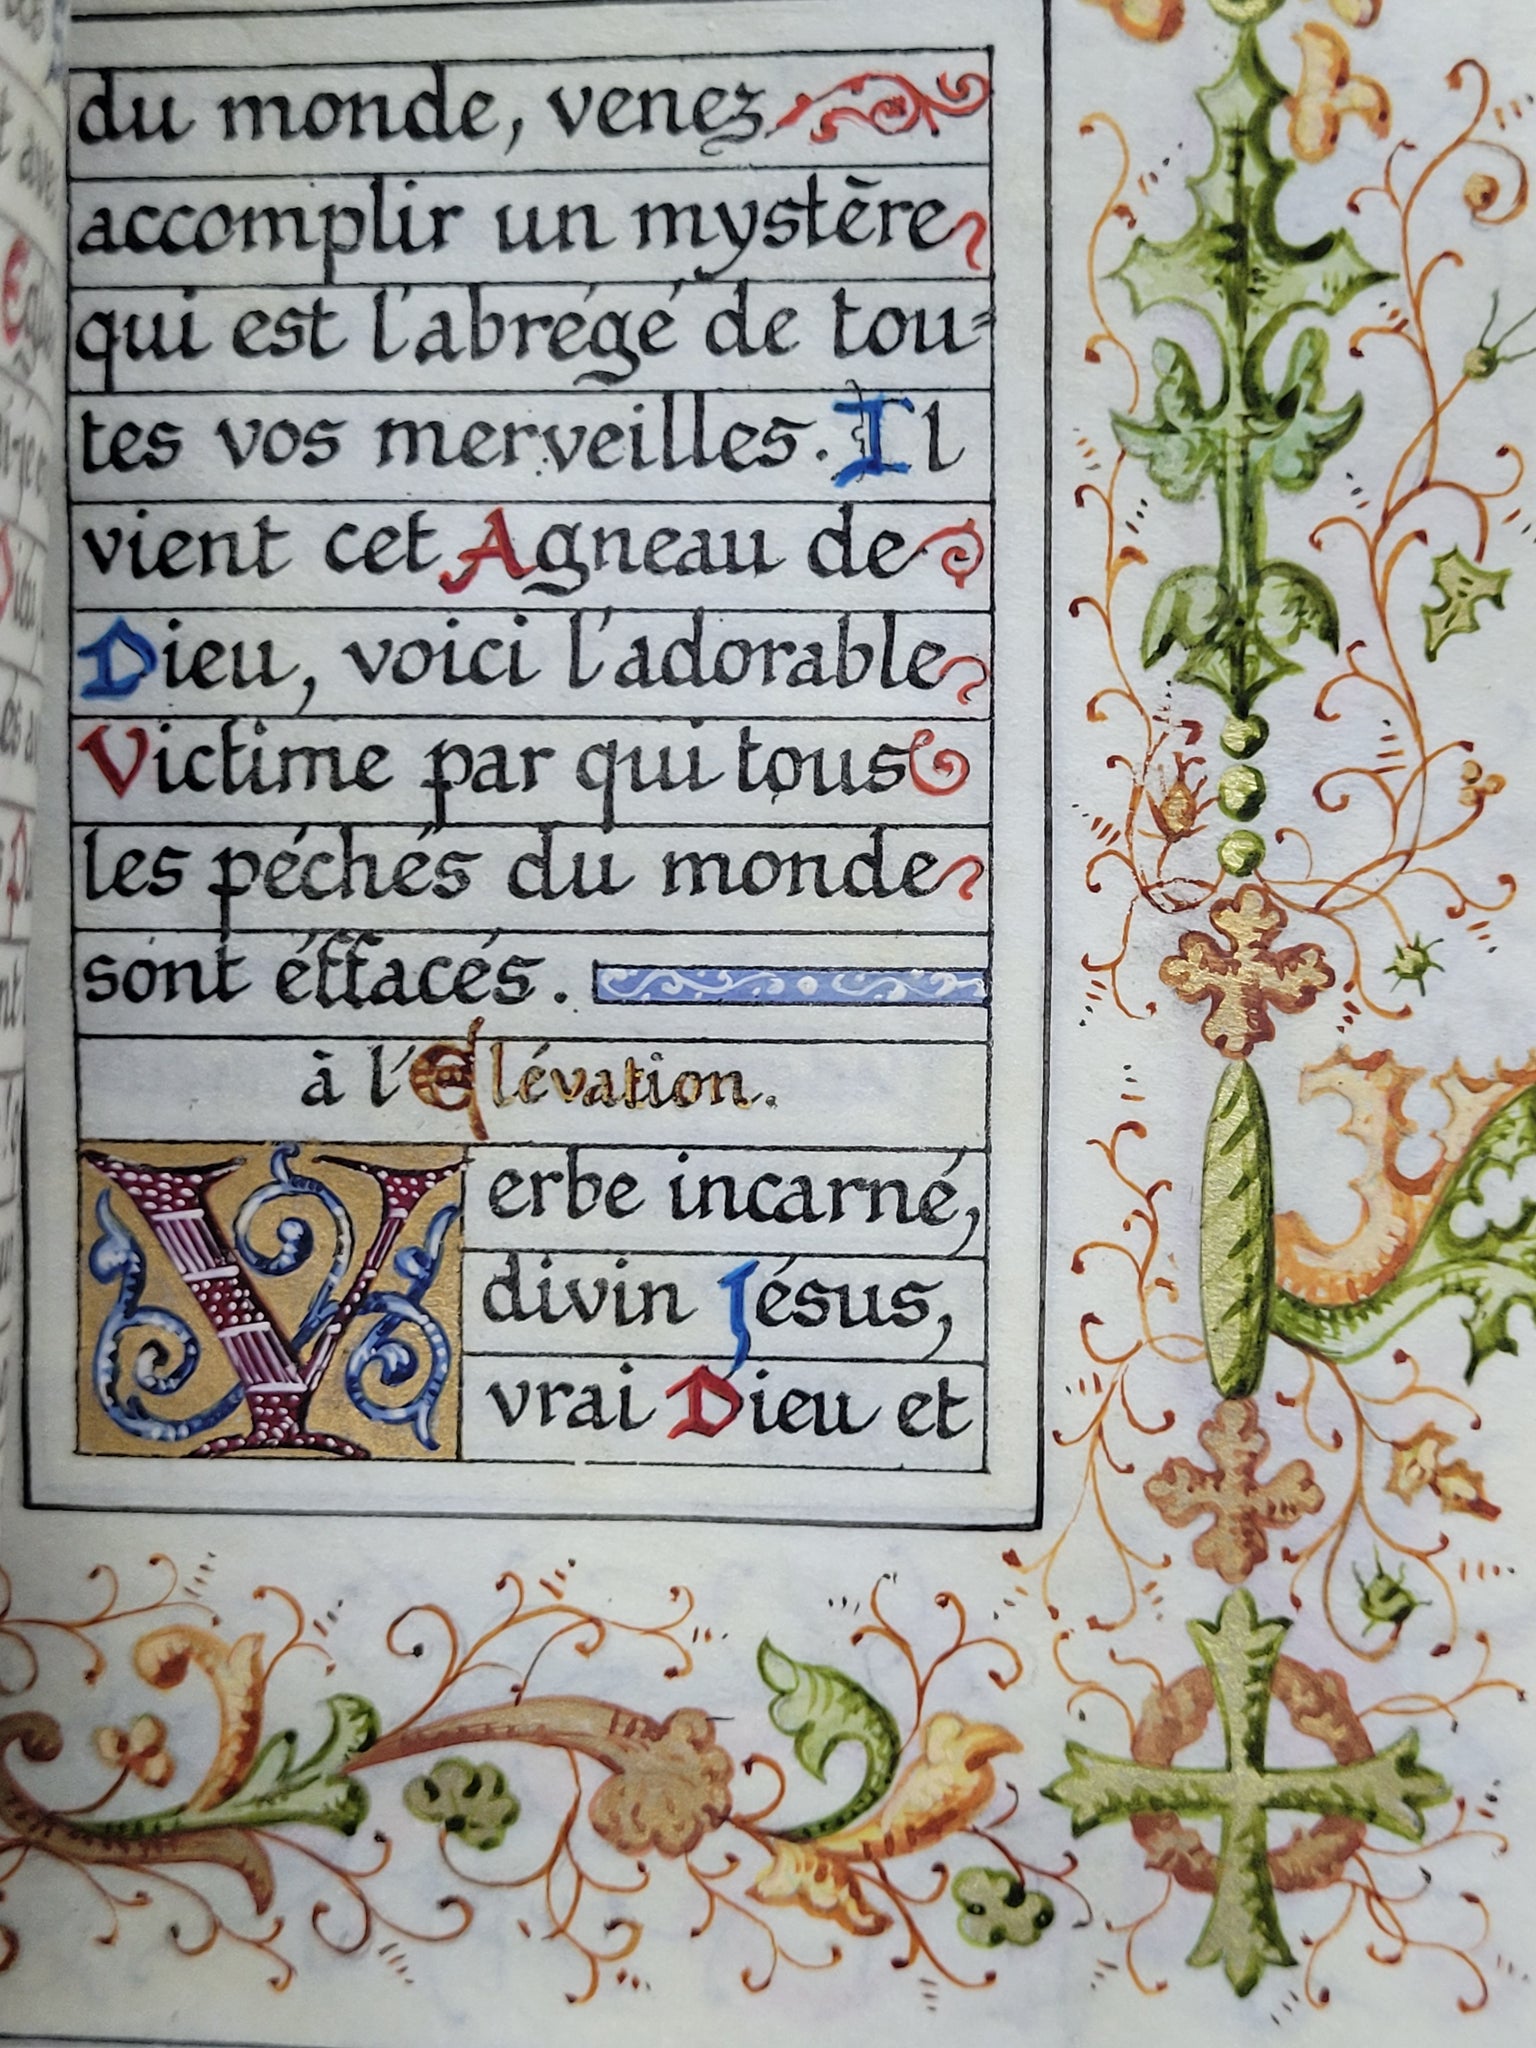 du monde, venez
accomplir un mystère
qui est l'abrégé de tou=
tes vos merveilles. Il
vient cet Agneau de
Dieu, voici l'adorable
Victime par qui tous
les péchés du monde
sont éffacés.
à l'Elévation.
Verbe incarné,
divin Jésus,
vrai Dieu et